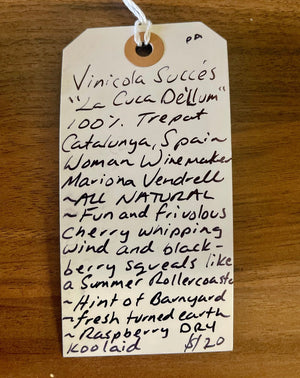 PA
Vinicola Succés
"La Cuca De Llum"
100% Trepat
Catalunya, Spain
Woman Winemaker
Mariona Vendrell
~ALL NATURAL
~Fun and frivolous
Cherry whipping
wind and black-
berry squeals like
a Summer Rollercoaster
~Hint of Barnyard
~fresh turned earth
~Raspberry DRY
Koolaid $/20